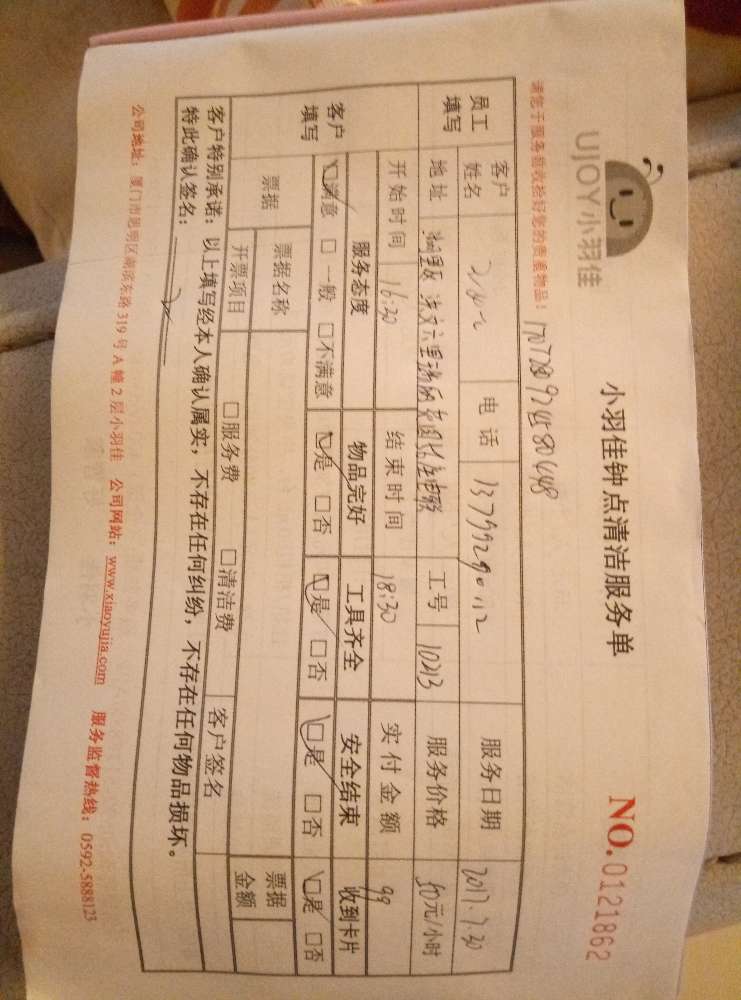 UJOY小羽佳
小羽佳钟点清洁服务单
NO.0121862
请您于服务前收拾好您的贵重物品!
员工填写 客户姓名 电话 服务日期 2017.7.30
地址 工号 10213 服务价格 50元/小时
开始时间 16:30 结束时间 18:30 实付金额 99
客户填写 服务态度 物品完好 工具齐全 安全结束 收到卡片
☑满意 □一般 □不满意 ☑是 □否 ☑是 □否 ☑是 □否 ☑是 □否
票据 票据名称 票据金额
开票项目 □服务费 □清洁费 客户签名
客户特别承诺:以上填写经本人确认属实,不存在任何纠纷,不存在任何物品损坏。
特此确认签名:
公司地址:厦门市思明区湖滨东路319号A幢2层小羽佳 公司网站:www.xiaoyujia.com 服务监督热线:0592-5888123